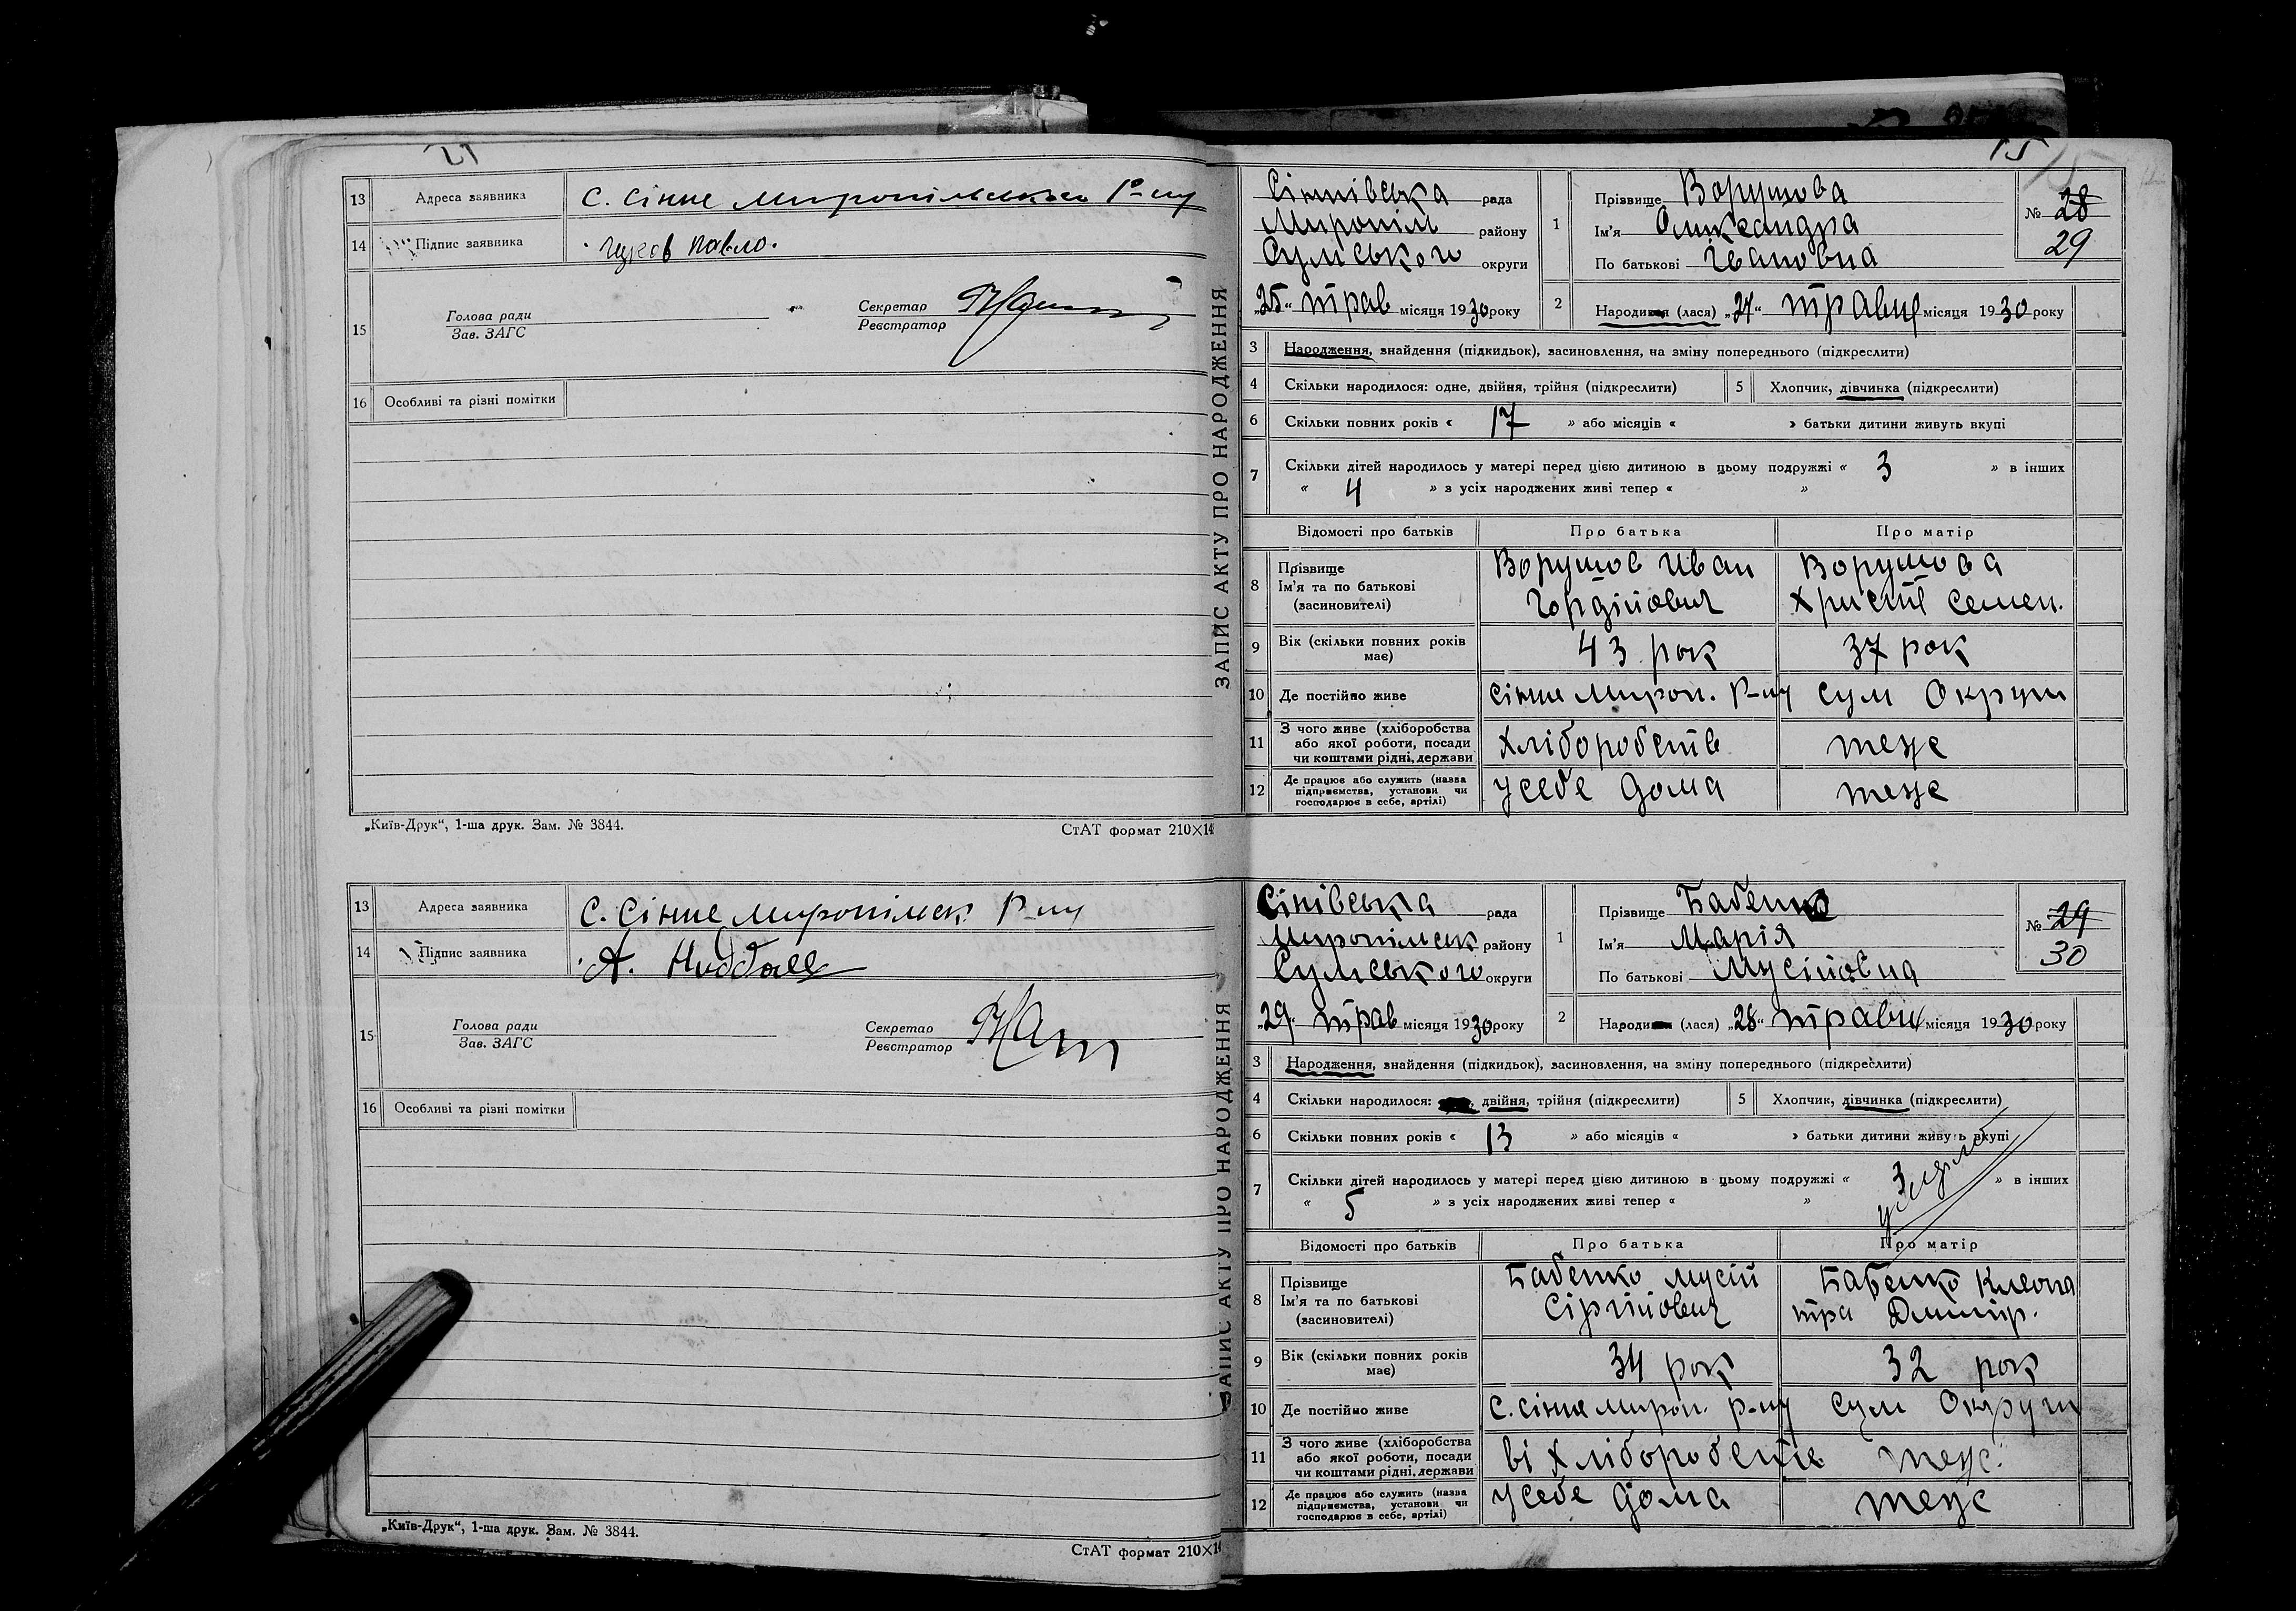 13 Адреса заявника С. Сінне Миропільського Р-ну
14 Підпис заявника Павло.
15 Голова ради
Зав. ЗАГС
Секретар
Реєстратор
16 Особливі та різні помітки
„Київ-Друк“, 1-ша друк. Зам. № 3844.
СтАТ формат 210×14
13 Адреса заявника С. Сінне Миропільск Р-ну
14 Підпис заявника А.
15 Голова ради
Зав. ЗАГС
Секретар
Реєстратор
16 Особливі та різні помітки
„Київ-Друк“, 1-ша друк. Зам. № 3844.
СтАТ формат 210×1
15
ЗАПИС АКТУ ПРО НАРОДЖЕННЯ
Сіннівська рада
Миропіл району
Сумського округи
„25“ трав місяця 1930 року
1 Прізвище Ворушова
Ім'я Олександра
По батькові Івановна
№ 28
29
2 Народився (лася) „24“ травня місяця 1930 року
3 Народження, знайдення (підкидьок), засиновлення, на зміну попереднього (підкреслити)
4 Скільки народилося: одне, двійня, трійня (підкреслити) 5 Хлопчик, дівчинка (підкреслити)
6 Скільки повних років « 17 » або місяців « » батьки дитини живуть вкупі
7 Скільки дітей народилось у матері перед цією дитиною в цьому подружжі « 3 » в інших
« 4 » з усіх народжених живі тепер « »
Відомості про батьків Про батька Про матір
8 Прізвище
Ім'я та по батькові
(засиновителі)
Ворушов Иван
Гордійович
Ворушова
Христе Семен.
9 Вік (скільки повних років має) 43 рок 37 рок
10 Де постійно живе Сінне Мироп. Р-ну Сум Округи
11 З чого живе (хліборобства
або якої роботи, посади
чи коштами рідні, держави
Хліборобств теже
12 Де працює або служить (назва
підприємства, установи чи
господарює в себе, артілі)
усебе дома теже
ЗАПИС АКТУ ПРО НАРОДЖЕННЯ
Сінівська рада
Миропільск району
Сумського округи
„29“ трав місяця 1930 року
1 Прізвище Бабенко
Ім'я Марія
По батькові Мусійовна
№ 29
30
2 Народи (лася) „28“ травня місяця 1930 року
3 Народження, знайдення (підкидьок), засиновлення, на зміну попереднього (підкреслити)
4 Скільки народилося: двійня, трійня (підкреслити) 5 Хлопчик, дівчинка (підкреслити)
6 Скільки повних років « 13 » або місяців « » батьки дитини живуть вкупі
7 Скільки дітей народилось у матері перед цією дитиною в цьому подружжі « 3 » в інших
« 5 » з усіх народжених живі тепер « »
Відомості про батьків Про батька Про матір
8 Прізвище
Ім'я та по батькові
(засиновителі)
Бабенко Мусій
Сіргійович
Бабенко Клеопа
тра Дмитр.
9 Вік (скільки повних років має) 34 рок 32 рок
10 Де постійно живе С. Сінне Мироп. р-ну Сум Округи
11 З чого живе (хліборобства
або якої роботи, посади
чи коштами рідні, держави
ві хліборобств теже
12 Де працює або служить (назва
підприємства, установи чи
господарює в себе, артілі)
усебе дома теже